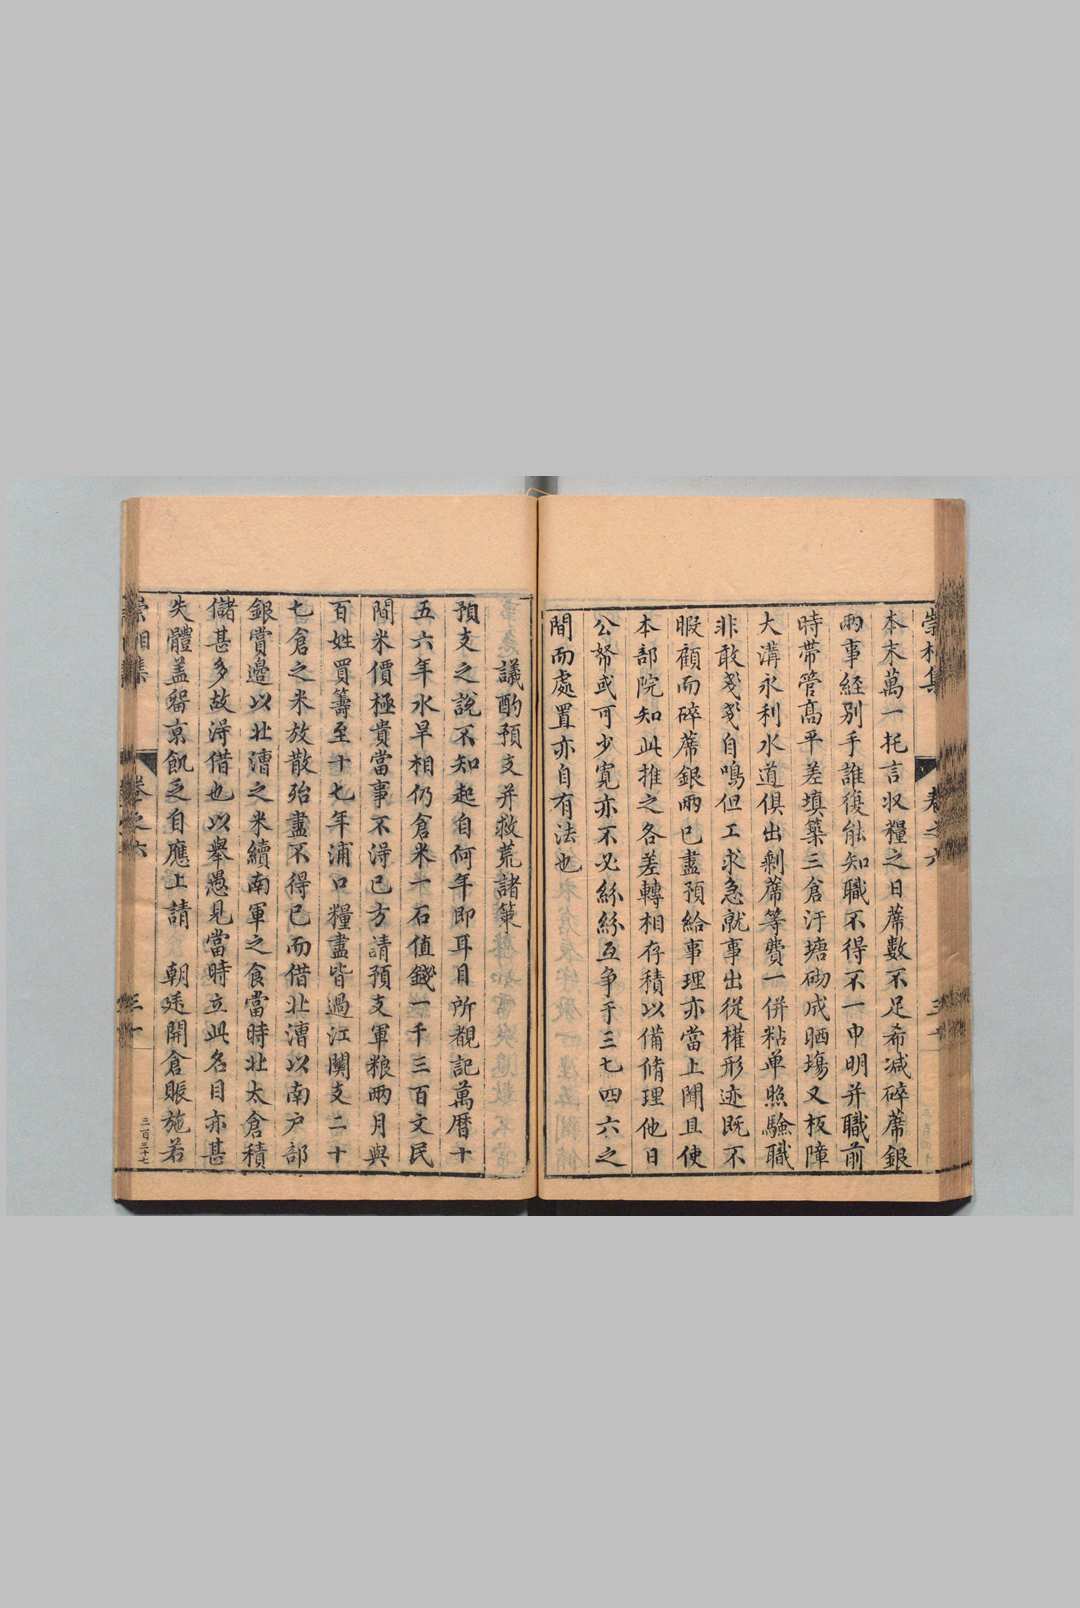 崇相集
卷之六
本末萬一托言収糧之日蓆數不足希减碎蓆銀
兩事経别手誰復能知職不得不一申明并職前
時带管高平差填築三倉汙塘砌成晒塲又板障
大溝永利水道俱出剩蓆等費一併粘单照驗職
非敢戔戔自鳴但工求急就事出從權形迹既不
暇顧而碎蓆銀兩已盡預給事理亦當上聞且使
本部院知此推之各差轉相存積以備脩理他日
公帑或可少寛亦不必絲絲互争于三七四六之
間而處置亦自有法也
議酌預支并救荒諸策
預支之說不知起自何年即耳目所覩記萬曆十
五六年水旱相仍倉米一石值錢一千三百文民
間米價極貴當事不淂已方請預支軍粮兩月與
百姓買籌至十七年浦口糧盡皆過江関支二十
七倉之米放散殆盡不得已而借北漕以南户部
銀賞邉以北漕之米續南軍之食當時北太倉積
儲甚多故淂借也以舉愚見當時立此名目亦甚
失體盖畱京飢乏自應上請 朝廷開倉賑施若
崇相集
卷之六
三百三十七